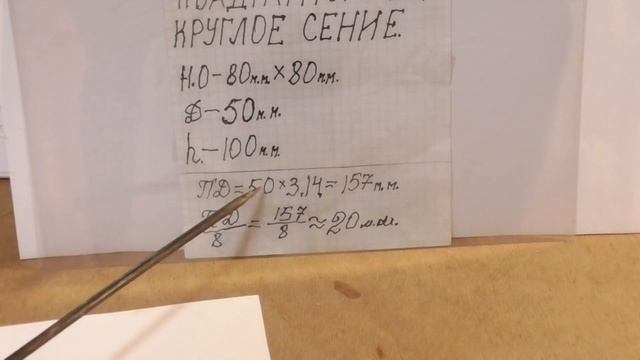 КРУГЛОЕ СЕНИЕ.
Н.О-80м.м.×80м.м.
Д-50м.м.
h.-100м.м.
ПД=50×3,14=157м.м.
ПД/8=157/8≈20м.м.